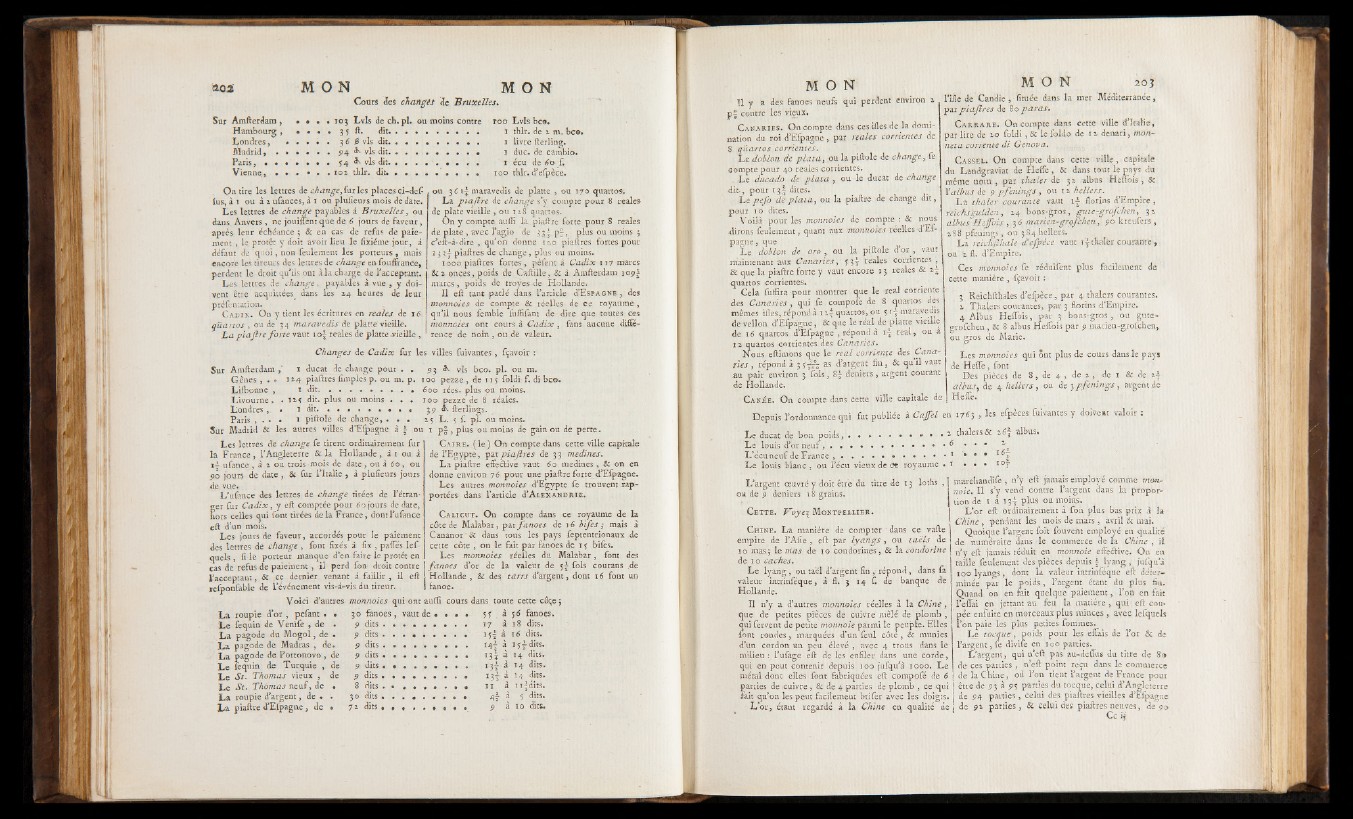 202 MON MON
Cours des changes de Bruxelles.
Sur Amſterdam, . . . . 103 Lvls de ch. pl. ou moins contre 100 Lvls bco.
Hambourg, . . . . 35 ſt. dit. . . . . . . . . . 1 thlr. de 2 m. bco.
Londres, . . . . . 36 ß vls dit. . . . . . . . . . 1 livre ſterling.
Madrid, . . . . . . 94 & vls dit. . . . . . . . . . 1 duc. de cambio.
Paris, . . . . . . . 54 & vls dit. . . . . . . . . . 1 écu de 60 ſ.
Vienne, . . . . . . 102 thlr. dit. . . . . . . . . . 100 thlr. d'eſpèce.
On tire les lettres de change, ſur les places ci-deſ-
ſus, à 1 ou à 2 uſances, à 1 ou pluſieurs mois de date.
Les lettres de change payables à Bruxelles, ou
dans Anvers, ne jouiſſent que de 6 jours de faveur,
après leur échéance; & en cas de refus de paie-
ment, le protêt y doit avoir lieu le ſixième jour, à
défaut de quoi, non ſeulement les porteurs, mais
encore les tireurs des lettres de change en ſouffrance,
perdent le droit qu'ils ont à la charge de l'acceptant.
Les lettres de change, payables à vue, y doi-
vent être acquittées dans les 24 heures de leur
préſentation.
CADIX. On y tient les écritures en reales de 16
quartos, ou de 34 maravedis de platte vieille.
La piaſtre forte vaut 10⅝ reales de platte vieille,
ou 361¼ maravedis de platte, ou 170 quartos.
La piaſtre de change s'y compte pour 8 reales
de plate vieille, ou 128 quartos.
On y compte auſſi la piaſtre forte pour 8 reales
de plate, avec l'agio de p%, plus ou moins;
c'eſt-à-dire, qu'on donne 100 piaſtres fortes pour
piaſtres de change, plus ou moins.
1000 piaſtres fortes, pèſent à Cadix 117 marcs
& 2 onces, poids de Caſtille, & à Amſterdam 109¾
marcs, poids de troyes de Hollande.
Il eſt tant parlé dans l'article d'ESPAGNE, des
monnoies de compte & réelles de ce royaume,
qu'il nous ſemble ſuffiſant de dire que toutes ces
monnoies ont cours à Cadix, ſans aucune diffé-
rence de nom, ou de valeur.
Changes de Cadix ſur les villes ſuivantes, ſçavoir :
Sur Amſterdam, 1 ducat de change pour . . 93 & vls bco. pl. ou m.
Gênes, . . 124 piaſtres ſimples p. ou m. p. 100 pezze, de 115 ſoldi f. di bco.
Liſbonne, . 1 dit. . . . . . . . . . 600 rées. plus ou moins.
Livourne. . 125 dit. plus ou moins . . . 100 pezze de 8 réales.
Londres, . 1 dit. . . . . . . . . . 39 & ſterlings.
Paris, . . . 1 piſtole de change, . . . 15 L. 5 ſ. pl. ou moins.
Sur Madrid & les autres villes d'Eſpagne à ½ ou 1 p%, plus ou moins de gain ou de perte.
Les lettres de change ſe tirent ordinairement ſur
la France, l'Angleterre & la Hollande, à 1 ou à
1½ uſance, à 2 ou trois mois de date, ou à 60, ou
90 jours de date, & ſur l'Italie, à pluſieurs jours
de vue.
L'uſance des lettres de change tirées de l'étran-
ger ſur Cadix, y eſt comptée pour 60 jours de date,
hors celles qui ſont tirées de la France, dont l'uſance
eſt d'un mois.
Les jours de faveur, accordés pour le paiement
des lettres de change, ſont fixés à ſix, paſſés leſ-
quels, ſi le porteur manque d'en faire le protêt en
cas de refus de paiement, il perd ſon droit contre
l'acceptant, & ce dernier venant à faillir, il eſt
reſponſable de l'événement vis-à-vis du tireur.
CAIRE. (le) On compte dans cette ville capitale
de l'Egypte, par piaſtres de 33 medines.
La piaſtre effective vaut 60 medines, & on en
donne environ 76 pour une piaſtre forte d'Eſpagne.
Les autres monnoies d'Egypte ſe trouvent rap-
portées dans l'article d'ALEXANDRIE.
CALICUT. On compte dans ce royaume de la
côte de Malabar, par fanoes de 16 biſes; mais à
Cananor & dans tous les pays ſeptentrionaux de
cette côte, on le fait par fanoes de 15 biſes.
Les monnoies réelles du Malabar, ſont des
fanoes d'or de la valeur de 5½ ſols courans de
Hollande, & des tarrs d'argent, dont 16 font un
fanoe.
Voici d'autres monnoies qui ont auſſi cours dans toute cette côte;
La roupie d'or, peſant . . 30 fanoes, vaut de . . . . 55 à 56 fanoes.
Le ſequin de Veniſe, de . 9 dits . . . . . . . . . 17 à 18 dits.
La pagode du Mogol, de . 9 dits . . . . . . . . . 15½ à 16 dits.
La pagode de Madras, de. 9 dits . . . . . . . . . 14½ à 15½ dits.
La pagode de Portonovo, de 9 dits . . . . . . . . . 13½ à 14 dits.
Le ſequin de Turquie, de 9 dits . . . . . . . . . 13½ à 14 dits.
Le St. Thomas vieux, de 9 dits . . . . . . . . . 13½ à 14 dits.
Le St. Thomas neuf, de . 8 dits . . . . . . . . . 11 à 11½ dits.
La roupie d'argent, de . . 30 dits . . . . . . . . . 4½ à 5 dits.
La piaſtre d'Eſpagne, de . 72 dits . . . . . . . . . 9 à 10 dits.
MON MON 203
Il y a des fanoes neufs qui perdent environ 2
p% contre les vieux.
CANARIES. On compte dans ces iſles de la domi-
nation du roi d'Eſpagne, par reales corrientes de
8 quartos corrientes.
Le doblon de plata, ou la piſtole de change, ſe
compte pour 40 reales corrientes.
Le ducado de plata, ou le ducat de change
dit, pour 13¾ dites.
Le peſo de plata, ou la piaſtre de change dit,
pour 10 dites.
Voilà pour les monnoies de compte : & nous
dirons ſeulement, quant aux monnoies réelles d'Eſ-
pagne, que
Le doblon de oro, ou la piſtole d'or, vaut
maintenant aux Canaries, reales corrientes,
& que la piaſtre forte y vaut encore 13 reales &
quartos corrientes.
Cela ſuffira pour montrer que le real corriente
des Canaries, qui ſe compoſe de 8 quartos des
mêmes iſles, répond à quartos, ou maravedis
de vellon d'Eſpagne, & que le réal de platte vieille
de 16 quartos d'Eſpagne, répond à real, ou à
12 quartos corrientes des Canaries.
Nous eſtimons que le real corriente des Cana-
ries, répond à as d'argent fin, & qu'il vaut
au pair environ 3 ſols, deniers, argent courant
de Hollande.
CANÉE. On compte dans cette ville capitale de
l'iſle de Candie, ſituée dans la mer Méditerranée,
par piaſtres de 80 paras.
CARRARE. On compte dans cette ville d'Italie,
par lire de 20 ſoldi, & le ſoldo de 12 denari, mon-
neta corrente di Genova.
CASSEL. On compte dans cette ville, capitale
du Landgraviat de Heſſe, & dans tout le pays du
même nom, par thaler de 32 albus Heſſois, &
l'albus de 9 pfenings, ou 12 hellers.
La thaler courante vaut 1½ florins d'Empire,
reichſgulden, 24 bons-gros, gute-groſchen, 32
albus Heſſois, 36 marien-groſchen, 90 kreuſers,
288 pfenings, ou 384 hellers.
La reichſthale d'eſpèce vaut 1⅓ thaler courante,
ou 2 fl. d'Empire.
Ces monnoies ſe réduiſent plus facilement de
cette manière, ſçavoir :
3 Reichſthales d'eſpèce, par 4 thalers courantes.
2 Thalers courantes, par 3 florins d'Empire.
4 Albus Heſſois, par 3 bons-gros, ou gute-
groſchen, & 8 albus Heſſois par 9 marien-groſchen,
ou gros de Marie.
Les monnoies qui ont plus de cours dans le pays
de Heſſe, ſont
Des pièces de 8, de 4, de 2, de 1 & de
albus, de 4 hellers, ou de 3 pfenings, argent de
Heſſe.
Depuis l'ordonnance qui fut publiée à Caſſel en 1763, les eſpèces ſuivantes y doivent valoir :
Le ducat de bon poids, . . . . . . . . . . 2 thalers & 26⅔ albus.
Le louis d'or neuf, . . . . . . . . . . . 6 . . . 2
L'écu neuf de France, . . . . . . . . . . 1 . . .
Le louis blanc, ou l'écu vieux de ce royaume . 1 . . .
L'argent œuvré y doit être du titre de 13 loths,
ou de 9 deniers 18 grains.
CETTE. Voyez MONTPELLIER.
CHINE. La manière de compter dans ce vaſte
empire de l'Aſie, eſt par lyangs, ou taels de
10 mas; le mas de 10 condorines, & la condorine
de 10 caches.
Le lyang, ou taël d'argent fin, répond, dans ſa
valeur intrinſèque, à fl. 3 14 ſ. de banque de
Hollande.
Il n'y a d'autres monnoies réelles à la Chine,
que de petites pièces de cuivre mêlé de plomb,
qui ſervent de petite monnoie parmi le peuple. Elles
ſont rondes, marquées d'un ſeul côté, & munies
d'un cordon un peu élevé, avec 4 trous dans le
milieu : l'uſage eſt de les enfiler dans une corde,
qui en peut contenir depuis 100 juſqu'à 1000. Le
métal donc elles ſont fabriquées eſt compoſé de 6
parties de cuivre, & de 4 parties de plomb, ce qui
fait qu'on les peut facilement briſer avec les doigts.
L'or, étant regardé à la Chine en qualité de
marchandiſe, n'y eſt jamais employé comme mon-
noie. Il s'y vend contre l'argent dans la propor-
tion de 1 à 13½ plus ou moins.
L'or eſt ordinairement à ſon plus bas prix à la
Chine, pendant les mois de mars, avril & mai.
Quoique l'argent ſoit ſouvent employé en qualité
de numéraire dans le commerce de la Chine, il
n'y eſt jamais réduit en monnoie effective. On en
taille ſeulement des pièces depuis ½ lyang, juſqu'à
100 lyangs, dont la valeur intrinſèque eſt déter-
minée par le poids, l'argent étant du plus fin.
Quand on en fait quelque paiement, l'on en fait
l'eſſai en jettant au feu la matière, qui eſt cou-
pée enſuite en morceaux plus minces, avec leſquels
l'on paie les plus petites ſommes.
Le tocque, poids pour les eſſais de l'or & de
l'argent, ſe diviſe en 100 parties.
L'argent, qui n'eſt pas au-deſſus du titre de 80
de ces parties, n'eſt point reçu dans le commerce
de la Chine, où l'on tient l'argent de France pour
être de 93 à 95 parties du tocque, celui d'Angleterre
de 94 parties, celui des piaſtres vieilles d'Eſpagne
de 92 parties, & celui des piaſtres neuves, de 90
Cc ij